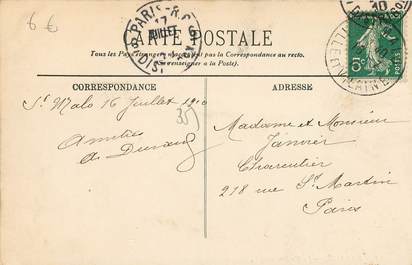 6 €
PARIS
17
JUILLET
CARTE POSTALE
Tous les Pays étrangers n'acceptent pas la Correspondance au recto.
(Se renseigner à la Poste).
CORRESPONDANCE
ADRESSE
St Malo 16 Juillet 1910
35
Amitiés
A. Durand
Madame et Monsieur
Janvier
Charcutier
218 rue St Martin
Paris
5c
POSTES
ILLE ET VILAINE